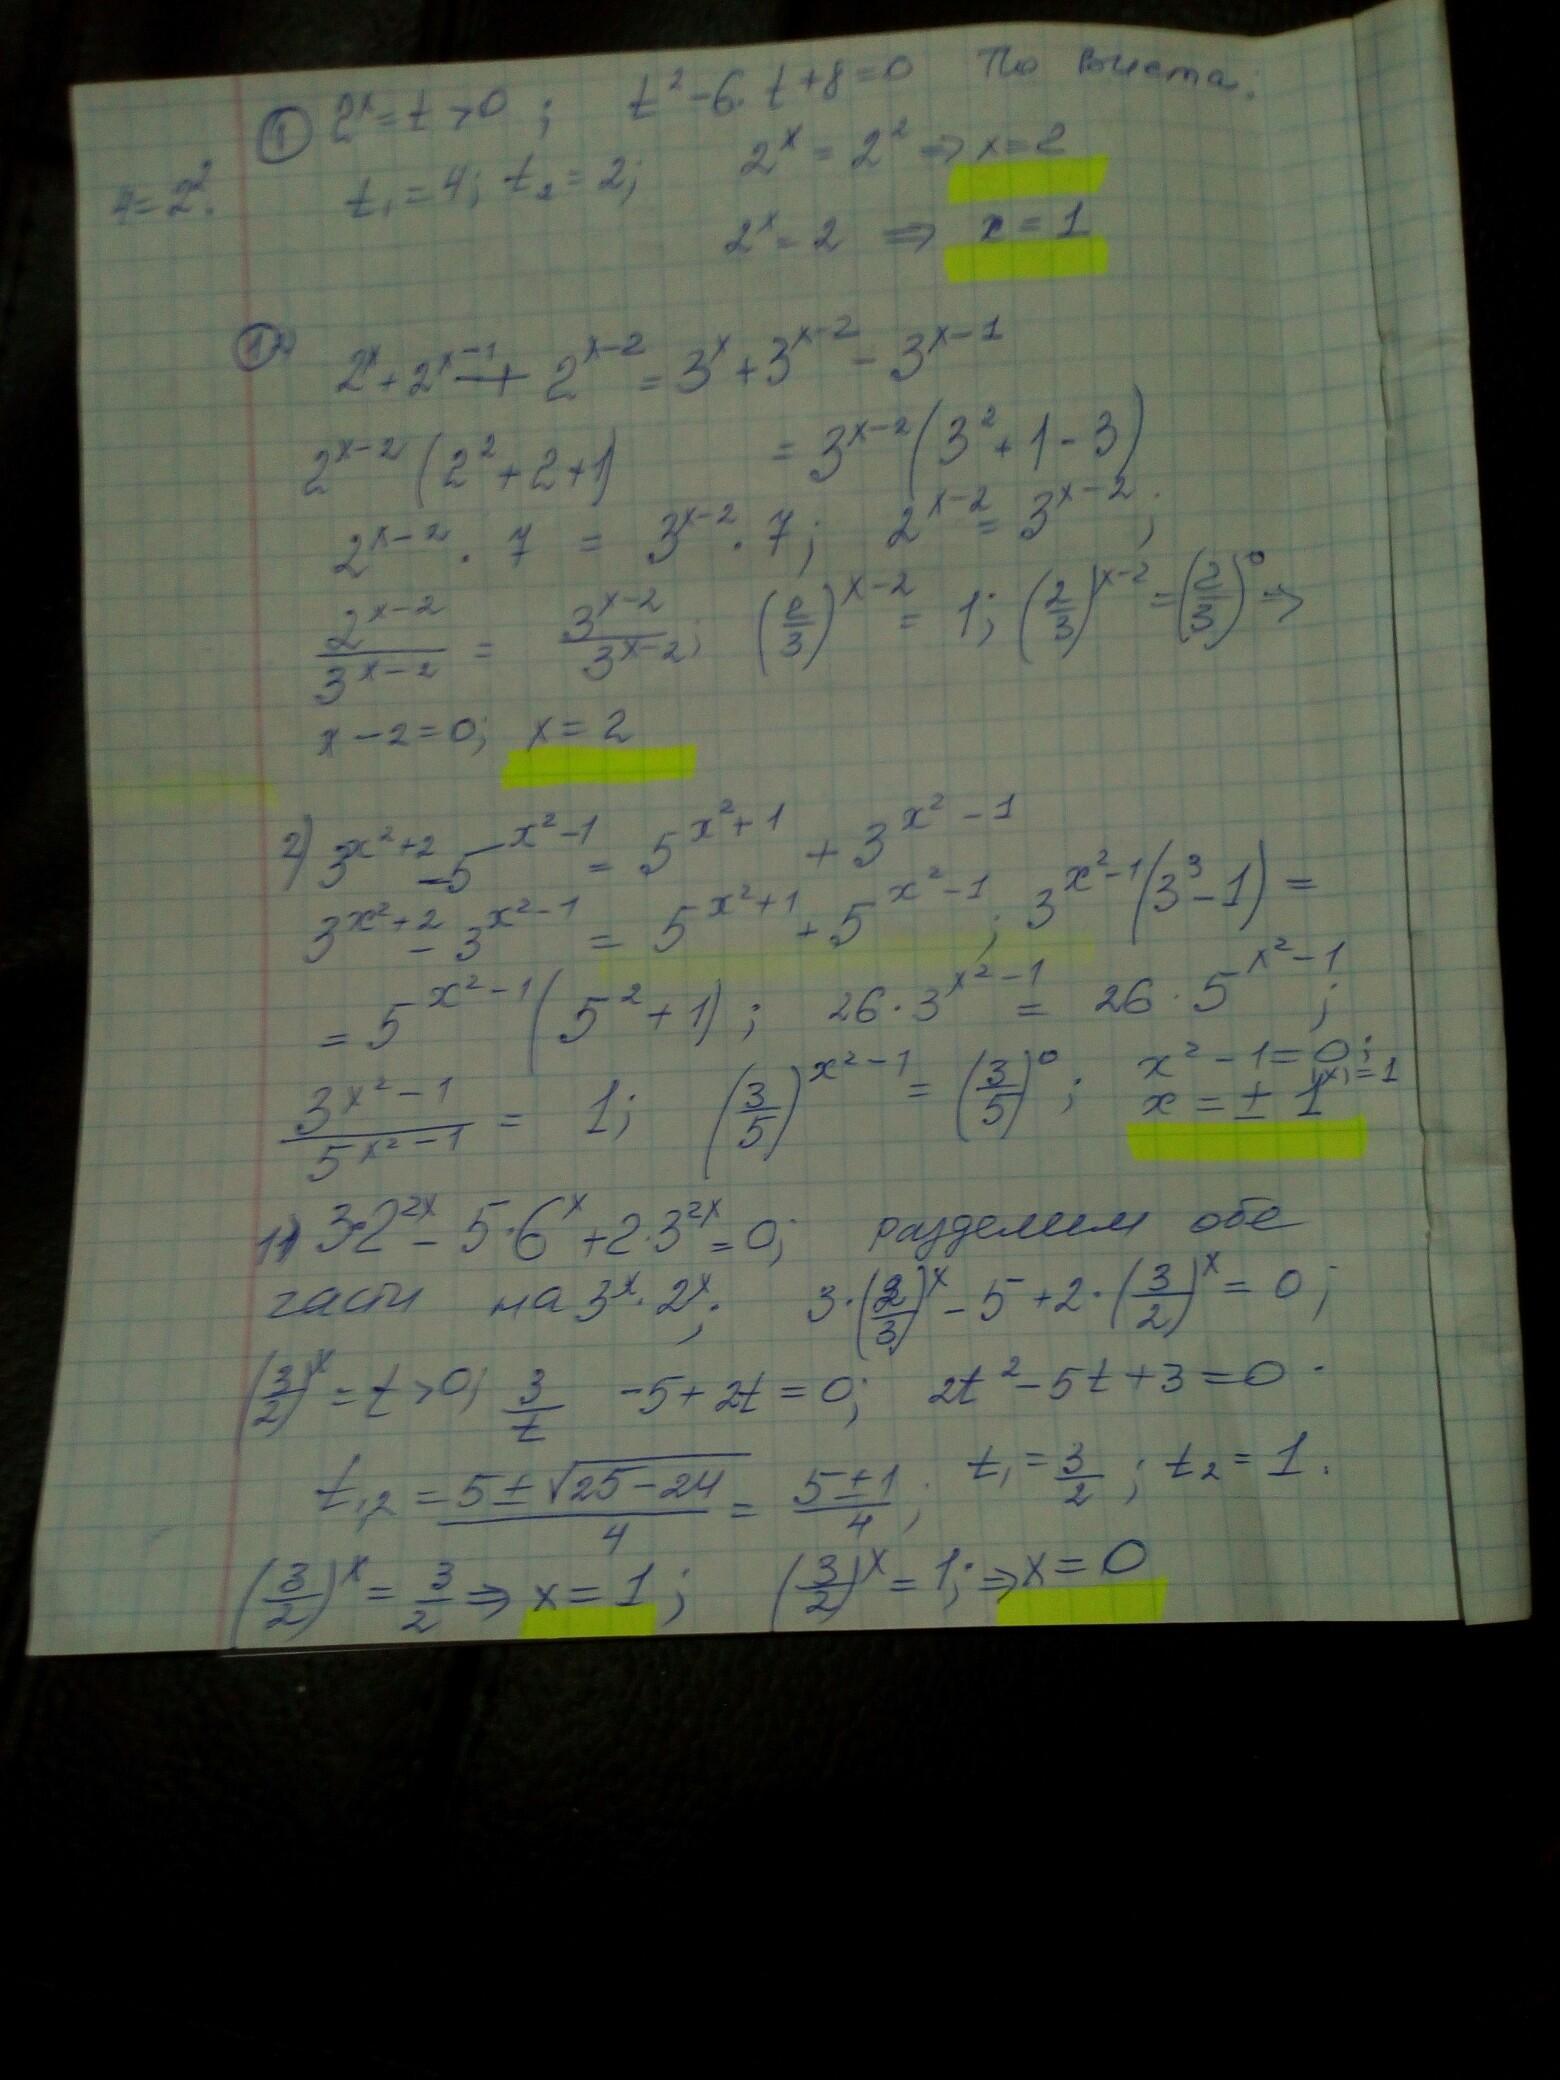 ① 2^x = t > 0 ; t² - 6·t + 8 = 0 По Виета:
4 = 2². t₁ = 4; t₂ = 2; 2^x = 2² ⇒ x = 2
2^x = 2 ⇒ x = 1
2^x + 2^(x-1) + 2^(x-2) = 3^x + 3^(x-2) - 3^(x-1)
2^(x-2) (2² + 2 + 1) = 3^(x-2) (3² + 1 - 3)
2^(x-2) · 7 = 3^(x-2) · 7; 2^(x-2) = 3^(x-2);
2^(x-2)/3^(x-2) = 3^(x-2)/3^(x-2); (2/3)^(x-2) = 1; (2/3)^(x-2) = (2/3)^0 ⇒
x - 2 = 0; x = 2
2) 3^(x²+2) - 5^(x²-1) = 5^(x²+1) + 3^(x²-1)
3^(x²+2) - 3^(x²-1) = 5^(x²+1) + 5^(x²-1) ; 3^(x²-1) (3³ - 1) =
= 5^(x²-1) (5² + 1); 26 · 3^(x²-1) = 26 · 5^(x²-1) ;
3^(x²-1)/5^(x²-1) = 1; (3/5)^(x²-1) = (3/5)^0 ; x² - 1 = 0;
x = ± 1
11) 3·2^(2x) - 5·6^x + 2·3^(2x) = 0; разделим обе
части на 3^x · 2^x; 3·(2/3)^x - 5 + 2·(3/2)^x = 0;
(3/2)^x = t > 0; 3/t - 5 + 2t = 0; 2t² - 5t + 3 = 0.
t₁,₂ = (5 ± √(25-24))/4 = (5±1)/4; t₁ = 3/2 ; t₂ = 1.
(3/2)^x = 3/2 ⇒ x = 1 ; (3/2)^x = 1; ⇒ x = 0